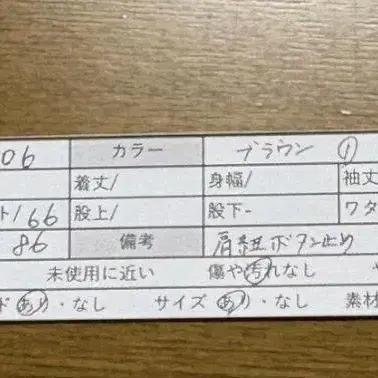 06 カラー ブラウン ①
着丈/ 身幅/ 袖丈
ト/66 股上/ 股下- ワタ
86 備考 肩紐ボタン止め
未使用に近い 傷や汚れなし
ド あり・なし サイズ あり・なし 素材